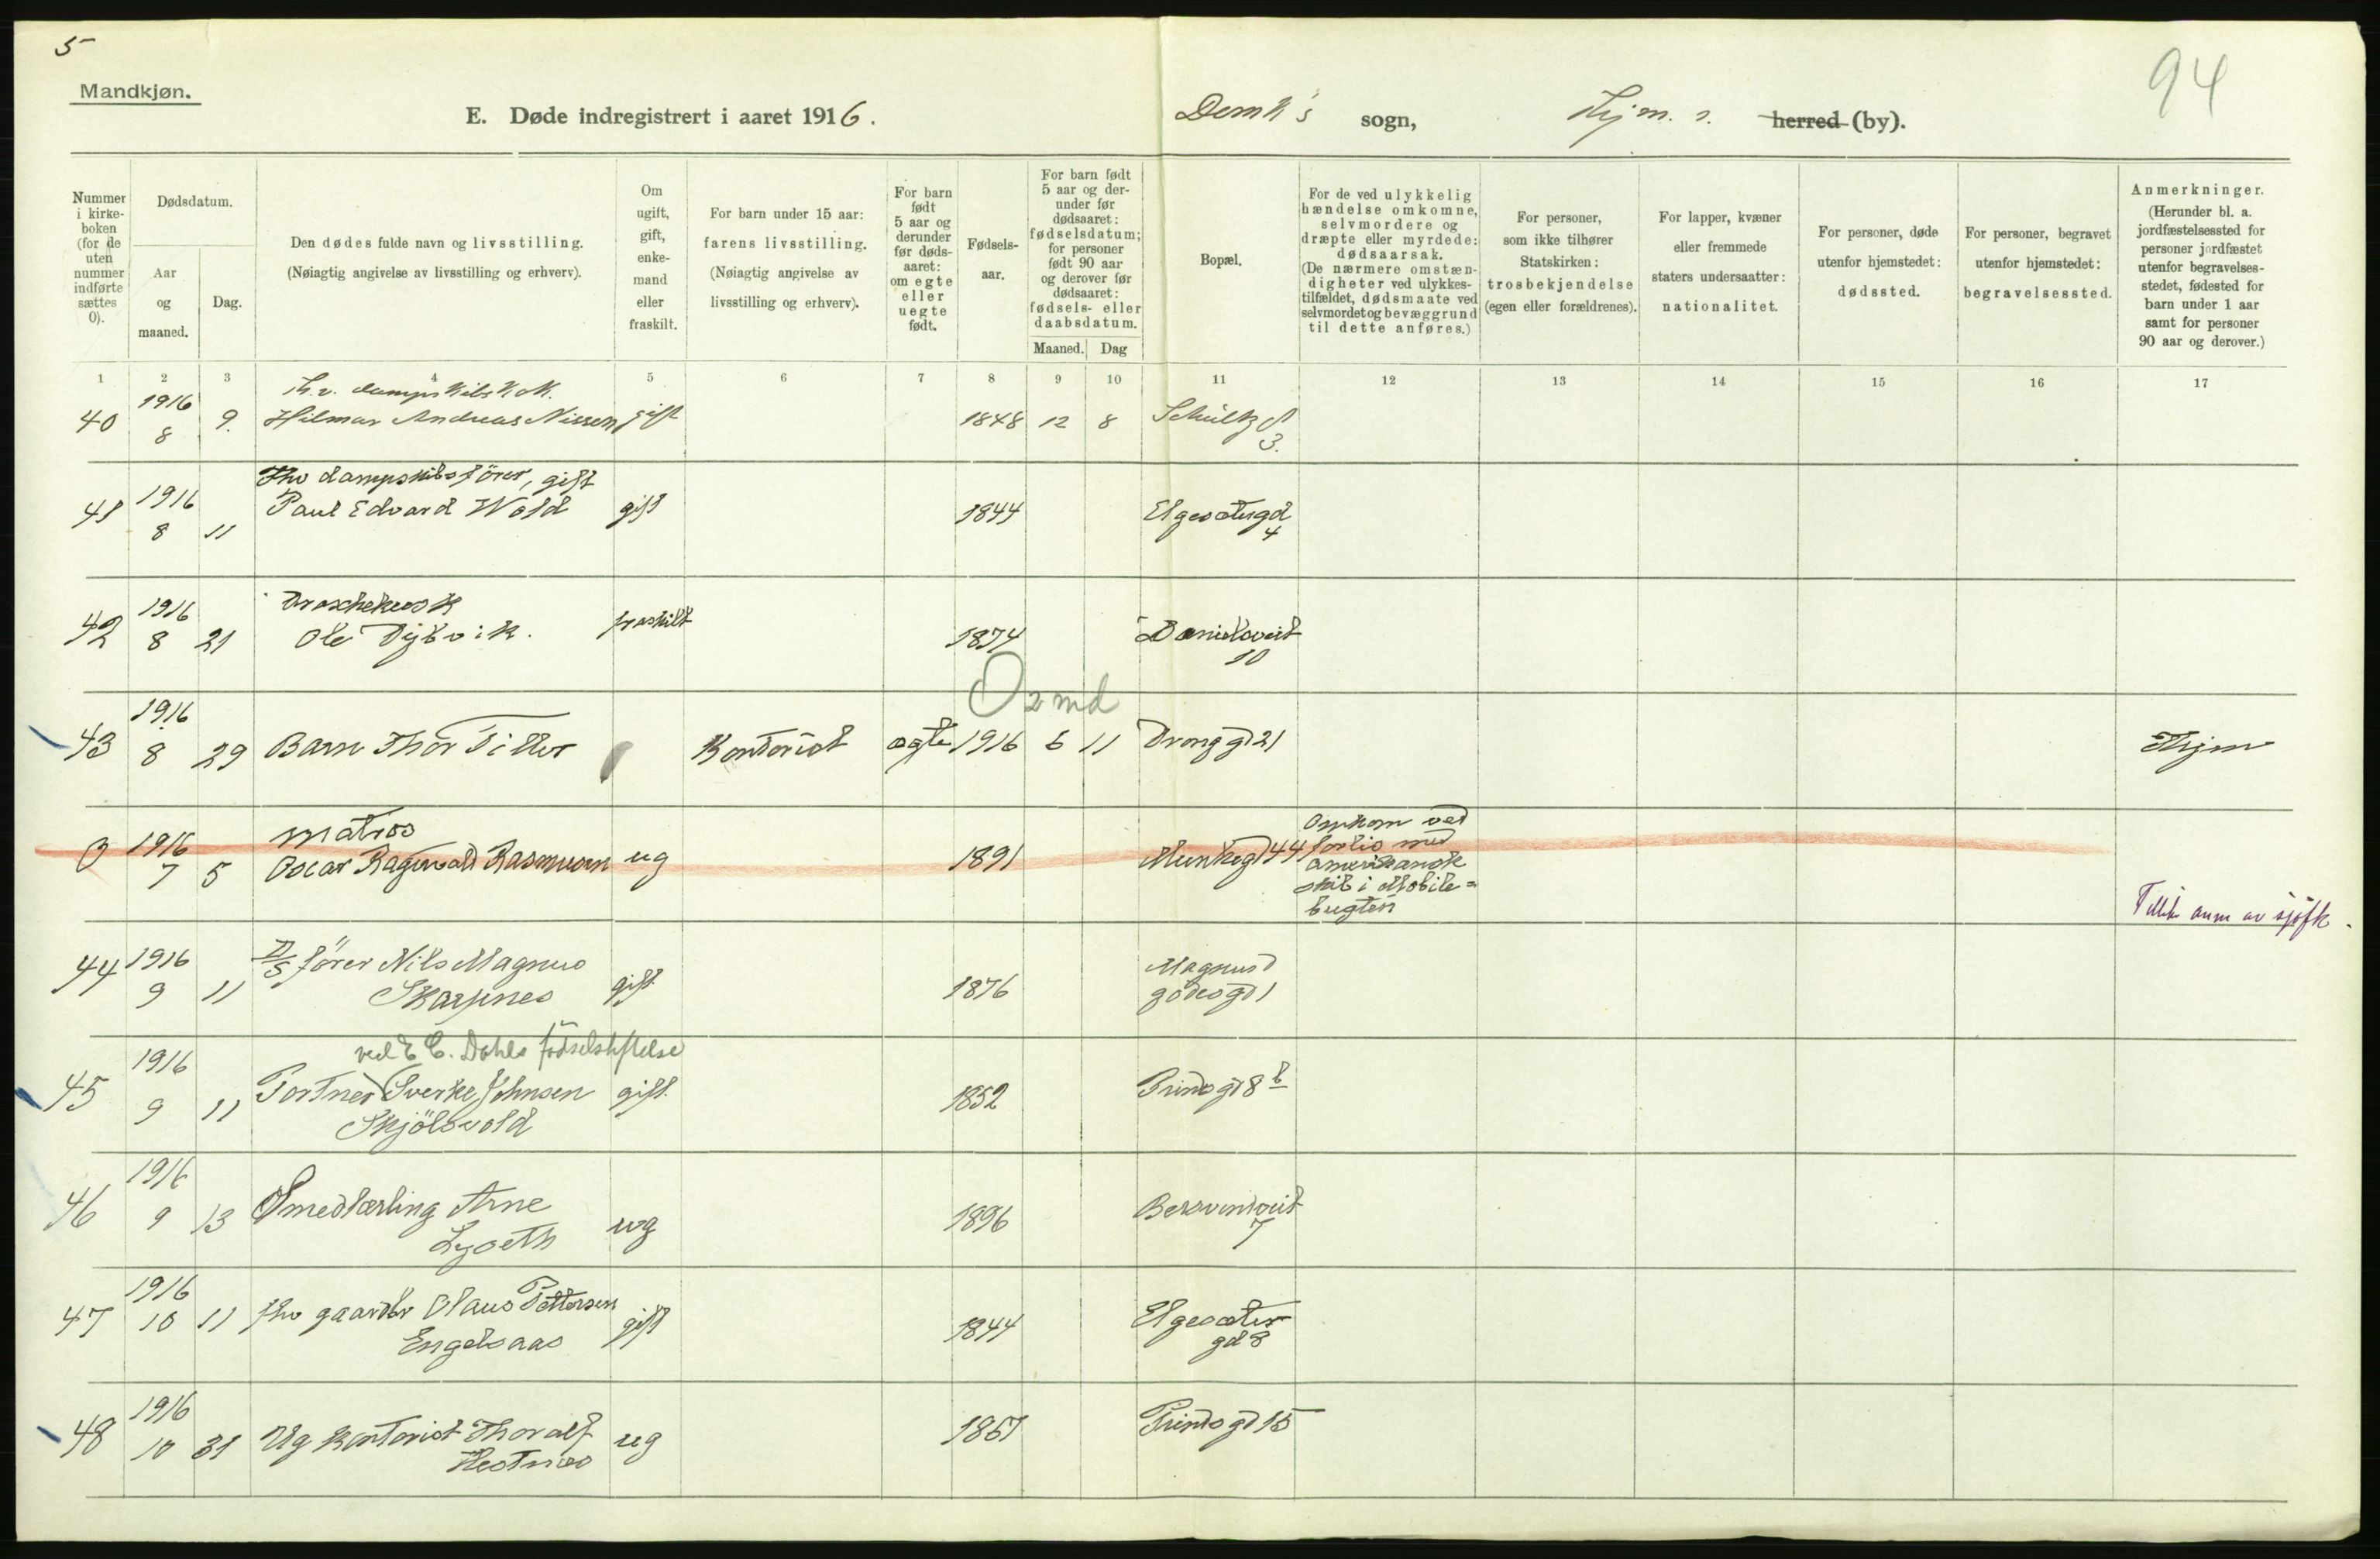 5
94
Mandkjøn.
E. Døde indregistrert i aaret 1916. Domk's sogn, Thjm. s. herred (by).
Nummer i kirke-boken (for de uten nummer indførte sættes 0).
Dødsdatum.
Aar og maaned.
Dag.
Den dødes fulde navn og livsstilling.
(Nøiagtig angivelse av livsstilling og erhverv).
Om ugift, gift, enke-mand eller fraskilt.
For barn under 15 aar:
farens livsstilling.
(Nøiagtig angivelse av livsstilling og erhverv).
For barn født 5 aar og derunder før døds-aaret: om egte eller uegte født.
Fødsels-aar.
For barn født 5 aar og der-under før dødsaaret: fødselsdatum; for personer født 90 aar og derover før dødsaaret: fødsels- eller daabsdatum.
Maaned. Dag
Bopæl.
For de ved ulykkelig hændelse omkomne, selvmordere og dræpte eller myrdede: dødsaarsak.
(De nærmere omstæn-digheter ved ulykkes-tilfældet, dødsmaate ved selvmordet og bevæggrund til dette anføres.)
For personer, som ikke tilhører Statskirken: trosbekjendelse (egen eller forældrenes).
For lapper, kvæner eller fremmede staters undersaatter: nationalitet.
For personer, døde utenfor hjemstedet: dødssted.
For personer, begravet utenfor hjemstedet: begravelsessted.
Anmerkninger.
(Herunder bl. a. jordfæstelsessted for personer jordfæstet utenfor begravelses-stedet, fødested for barn under 1 aar samt for personer 90 aar og derover.)
1 2 3 4 5 6 7 8 9 10 11 12 13 14 15 16 17
40 1916 8 9. Hilmar Andreas Nissen gift 1848 12 8 Schultz g 3.
Fhv dampskibsfører, gift
41 1916 8 11 Paul Edvard Wold gift 1844 Elgesætergd 4
Droschekusk
42 1916 8 21 Ole Dybvik. fraskilt 1874 Danielsveit 10
0 2 md
43 1916 8 29 Barn Thor Tiller Kontorist ægte 1916 6 11 Drong gd 21 Thjm
Matros
0 1916 7 5 Oscar Ragnvald Rasmussen ug 1891 Munkegd 44 Omkom ved
forlis med
amerikansk
skib i Mobile=
bugten
Tillik anm av sjöfk.
44 1916 9 11 D/S förer Nils Magnus gift 1876 Magnus d
Skarpnes godes gd 1
ved E. C. Dahls fødselsstiftelse
45 1916 9 11 Portner Sverke Johnsen gift. 1852 Prinds gd 8 b
Skjölsvold
46 1916 9 13 Smedlærling Arne ug 1896 Bersvendveit
Lyseth 7
47 1916 10 11 fhv gaardbr Olaus Pettersen gift 1844 Elgesæter
Engelsaas gd 8
48 1916 10 31 Ug kontorist Thoralf ug 1867 Prinds gd 15
Hestnes